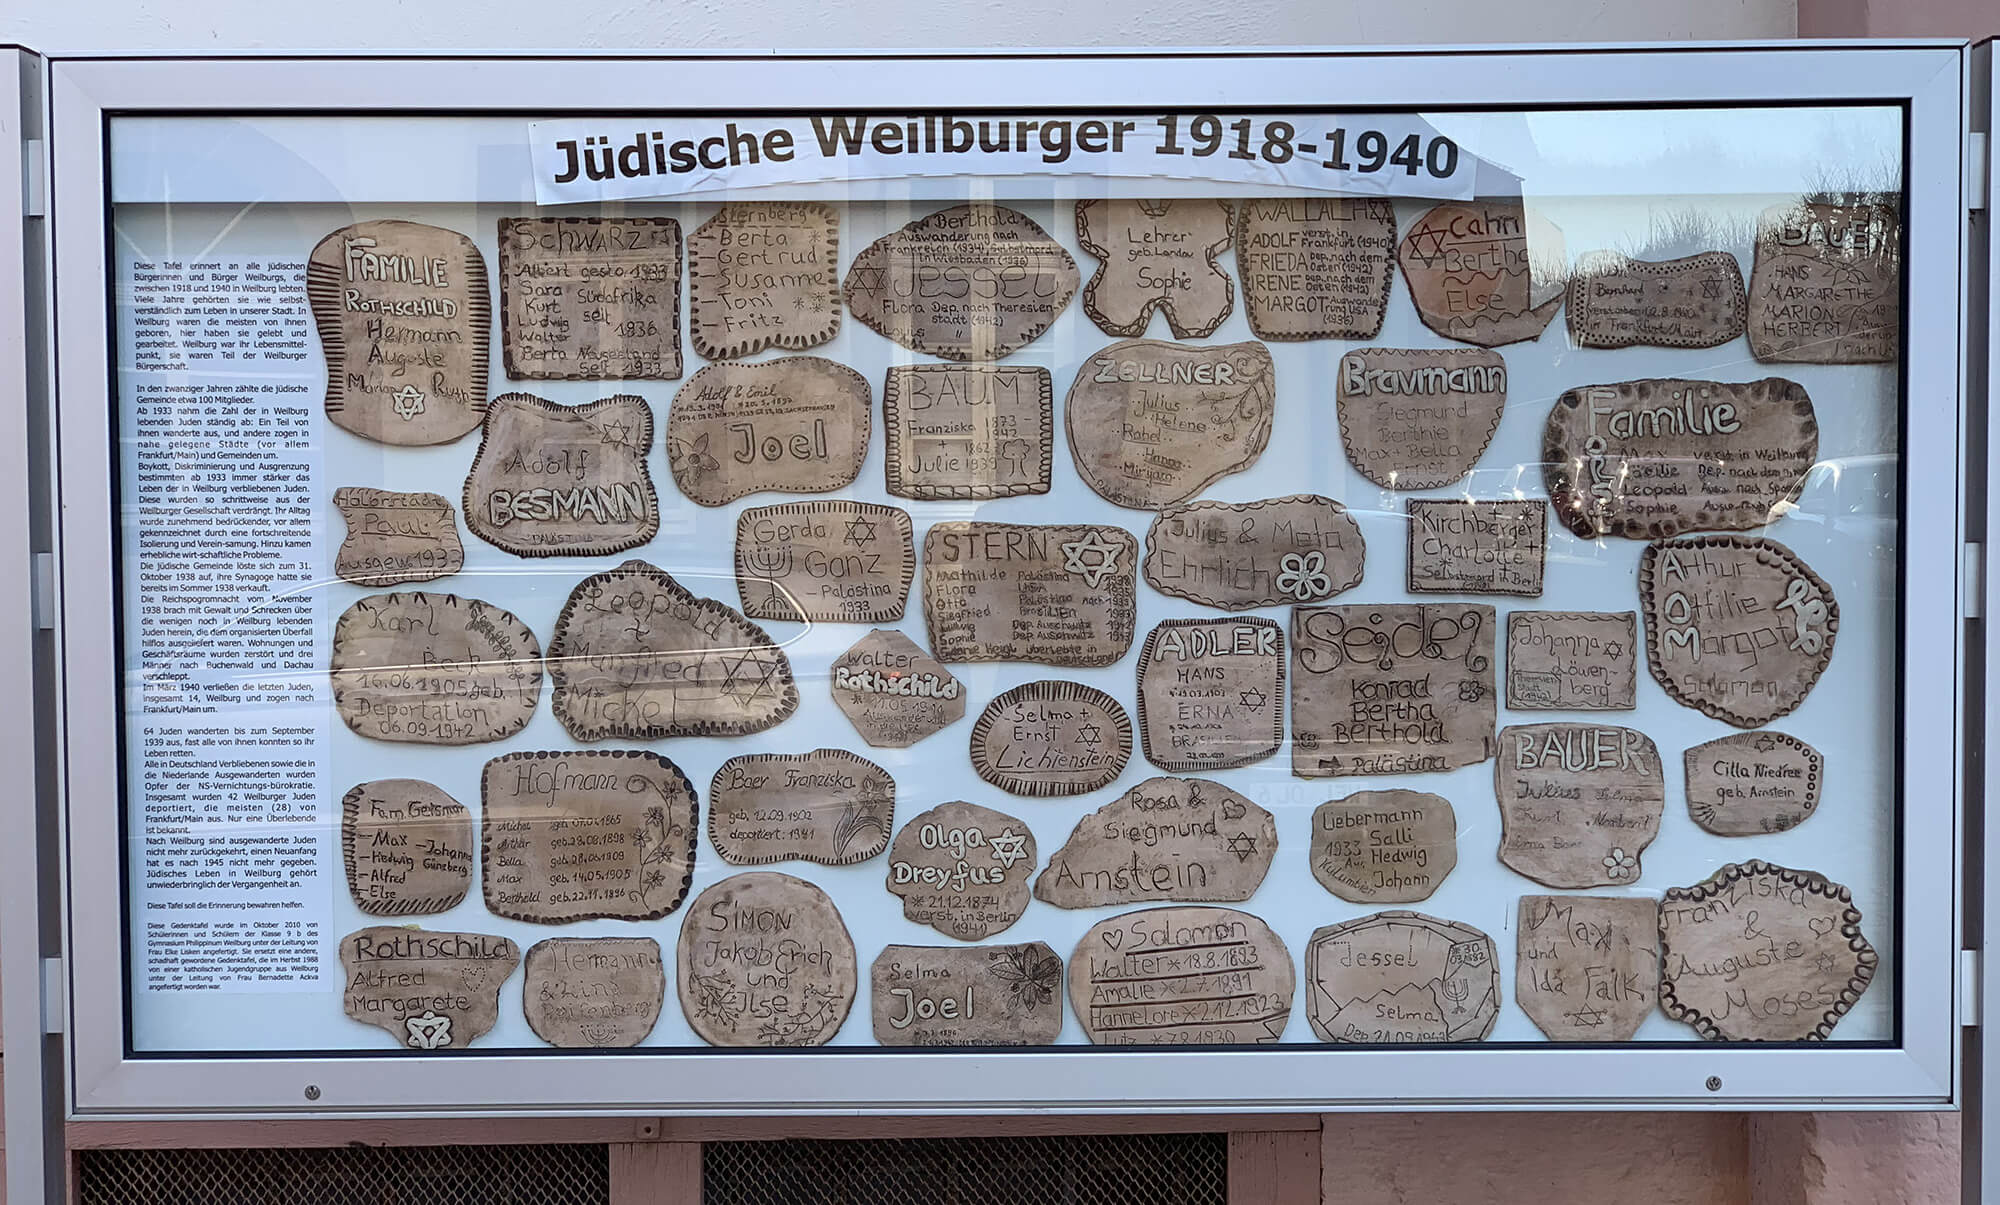 Jüdische Weilburger 1918-1940
Diese Tafel erinnert an alle jüdischen
Bürgerinnen und Bürger Weilburgs, die
zwischen 1918 und 1940 in Weilburg lebten.
Viele Jahre gehörten sie wie selbst-
verständlich zum Leben in unserer Stadt. In
Weilburg waren die meisten von ihnen
geboren, hier haben sie gelebt und
gearbeitet. Weilburg war ihr Lebensmittel-
punkt, sie waren Teil der Weilburger
Bürgerschaft.
In den zwanziger Jahren zählte die jüdische
Gemeinde etwa 100 Mitglieder.
Ab 1933 nahm die Zahl der in Weilburg
lebenden Juden ständig ab: Ein Teil von
ihnen wanderte aus, und andere zogen in
nahe gelegene Städte (vor allem
Frankfurt/Main) und Gemeinden um.
Boykott, Diskriminierung und Ausgrenzung
bestimmten ab 1933 immer stärker das
Leben der in Weilburg verbliebenen Juden.
Diese wurden so schrittweise aus der
Weilburger Gesellschaft verdrängt. Ihr Alltag
wurde zunehmend bedrückender, vor allem
gekennzeichnet durch eine fortschreitende
Isolierung und Verein-samung. Hinzu kamen
erhebliche wirt-schaftliche Probleme.
Die jüdische Gemeinde löste sich zum 31.
Oktober 1938 auf, ihre Synagoge hatte sie
bereits im Sommer 1938 verkauft.
Die Reichspogromnacht vom November
1938 brach mit Gewalt und Schrecken über
die wenigen noch in Weilburg lebenden
Juden herein, die dem organisierten Überfall
hilflos ausgeliefert waren. Wohnungen und
Geschäftsräume wurden zerstört und drei
Männer nach Buchenwald und Dachau
verschleppt.
Im März 1940 verließen die letzten Juden,
insgesamt 14, Weilburg und zogen nach
Frankfurt/Main um.
64 Juden wanderten bis zum September
1939 aus, fast alle von ihnen konnten so ihr
Leben retten.
Alle in Deutschland Verbliebenen sowie die in
die Niederlande Ausgewanderten wurden
Opfer der NS-Vernichtungs-bürokratie.
Insgesamt wurden 42 Weilburger Juden
deportiert, die meisten (28) von
Frankfurt/Main aus. Nur eine Überlebende
ist bekannt.
Nach Weilburg sind ausgewanderte Juden
nicht mehr zurückgekehrt, einen Neuanfang
hat es nach 1945 nicht mehr gegeben.
Jüdisches Leben in Weilburg gehört
unwiederbringlich der Vergangenheit an.
Diese Tafel soll die Erinnerung bewahren helfen.
Diese Gedenktafel wurde im Oktober 2010 von
Schülerinnen und Schülern der Klasse 9 b des
Gymnasium Philippinum Weilburg unter der Leitung von
Frau Elke Lisken angefertigt. Sie ersetzt eine andere,
schadhaft gewordene Gedenktafel, die im Herbst 1988
von einer katholischen Jugendgruppe aus Weilburg
unter der Leitung von Frau Bernadette Ackva
angefertigt worden war.
FAMILIE
ROTHSCHILD
Hermann
Auguste
Marion Ruth
SCHWARZ
Albert gesto. 1933
Sara
Kurt Südafrika
Ludwig seit
Walter 1936
Berta Neuseeland
seit 1933
Sternberg
- Berta
- Gertrud
- Susanne
- Toni
- Fritz
Berthold
Auswanderung nach
Frankreich (1934), Selbstmord
in Wiesbaden (1936)
Jessel
Flora Dep. nach Theresien-
stadt (1942)
Louis "
Lehrer
geb. Landau
Sophie
WALLACH
ADOLF verst. in Frankfurt (1940)
FRIEDA Dep. nach dem Osten (1942)
IRENE Dep. nach dem Osten (1942)
MARGOT Auswande rung USA (1936)
Cahn
Bertha
Else
Bernhard
verstorben 12.8.1940
in Frankfurt/Main
BAUER
HANS
MARGARETHE
MARION
HERBERT
Adolf
BESMANN
PALÄSTINA
Adolf & Emil
Joel
BAUM
Franziska 1873 - 1942
Julie 1862 - 1939
ZELLNER
Julius
Helene
Rahel
Hanna
Mirijam
PALÄSTINA
Braumann
Siegmund
Berthie
Max + Bella
Ernst
Familie
Max verst. in Weilburg
Leopold
Sophie
Halberstadt
Pauli
Ausgew. 1933
Gerda
Ganz
- Palästina
1933
STERN
Mathilde Palästina
Flora USA
Otto Palästina
Siegfried Brasilien
Ludwig Dep. Auschwitz
Sophie Dep. Auschwitz
überlebte in
Deutschland
Julius & Meta
Ehrlich
Kirchberger
Charlotte
Selbstmord in Berlin
Arthur
Ottilie
Margot
Salomon
Karl
Beck
16.06.1905 geb.
Deportation
06.09.1942
Leopold
&
Manfred
Michel
Walter
Rothschild
Selma +
Ernst
Lichtenstein
ADLER
HANS
ERNA
BRASILIEN
Seidel
Konrad
Bertha
Berthold
Palästina
Johanna
Löwen-
berg
Theresien
stadt
Fam. Geismar
- Max - Johanna
- Hedwig Günzberg
- Alfred
- Else
Hofmann
Michel geb. 07.01.1865
Arthur geb. 28.08.1898
Bella geb. 28.06.1909
Max geb. 14.05.1905
Berthold geb. 22.11.1896
Baer Franziska
geb. 12.09.1902
deportiert: 1941
Olga
Dreyfus
* 21.12.1874
verst. in Berlin
(1941)
Rosa &
Siegmund
Arnstein
Liebermann
Salli
1933 Hedwig
Aus. Johann
Kolumbien
BAUER
Julius Selma
Kurt Norbert
Cilla Niedree
geb. Arnstein
Rothschild
Alfred
Margarete
Hermann
SIMON
Jakob Erich
und
Ilse
Selma
Joel
Salomon
Walter * 18.8.1893
Amalie * 2.7.1891
Hannelore * 2.12.1923
Lutz * 7.8.1930
Jessel
Selma
Max
und
Ida Falk
Franziska
&
Auguste
Moses